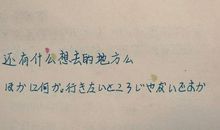 还有什么想去的地方么
ほかに何か行きたいところじゃないですか